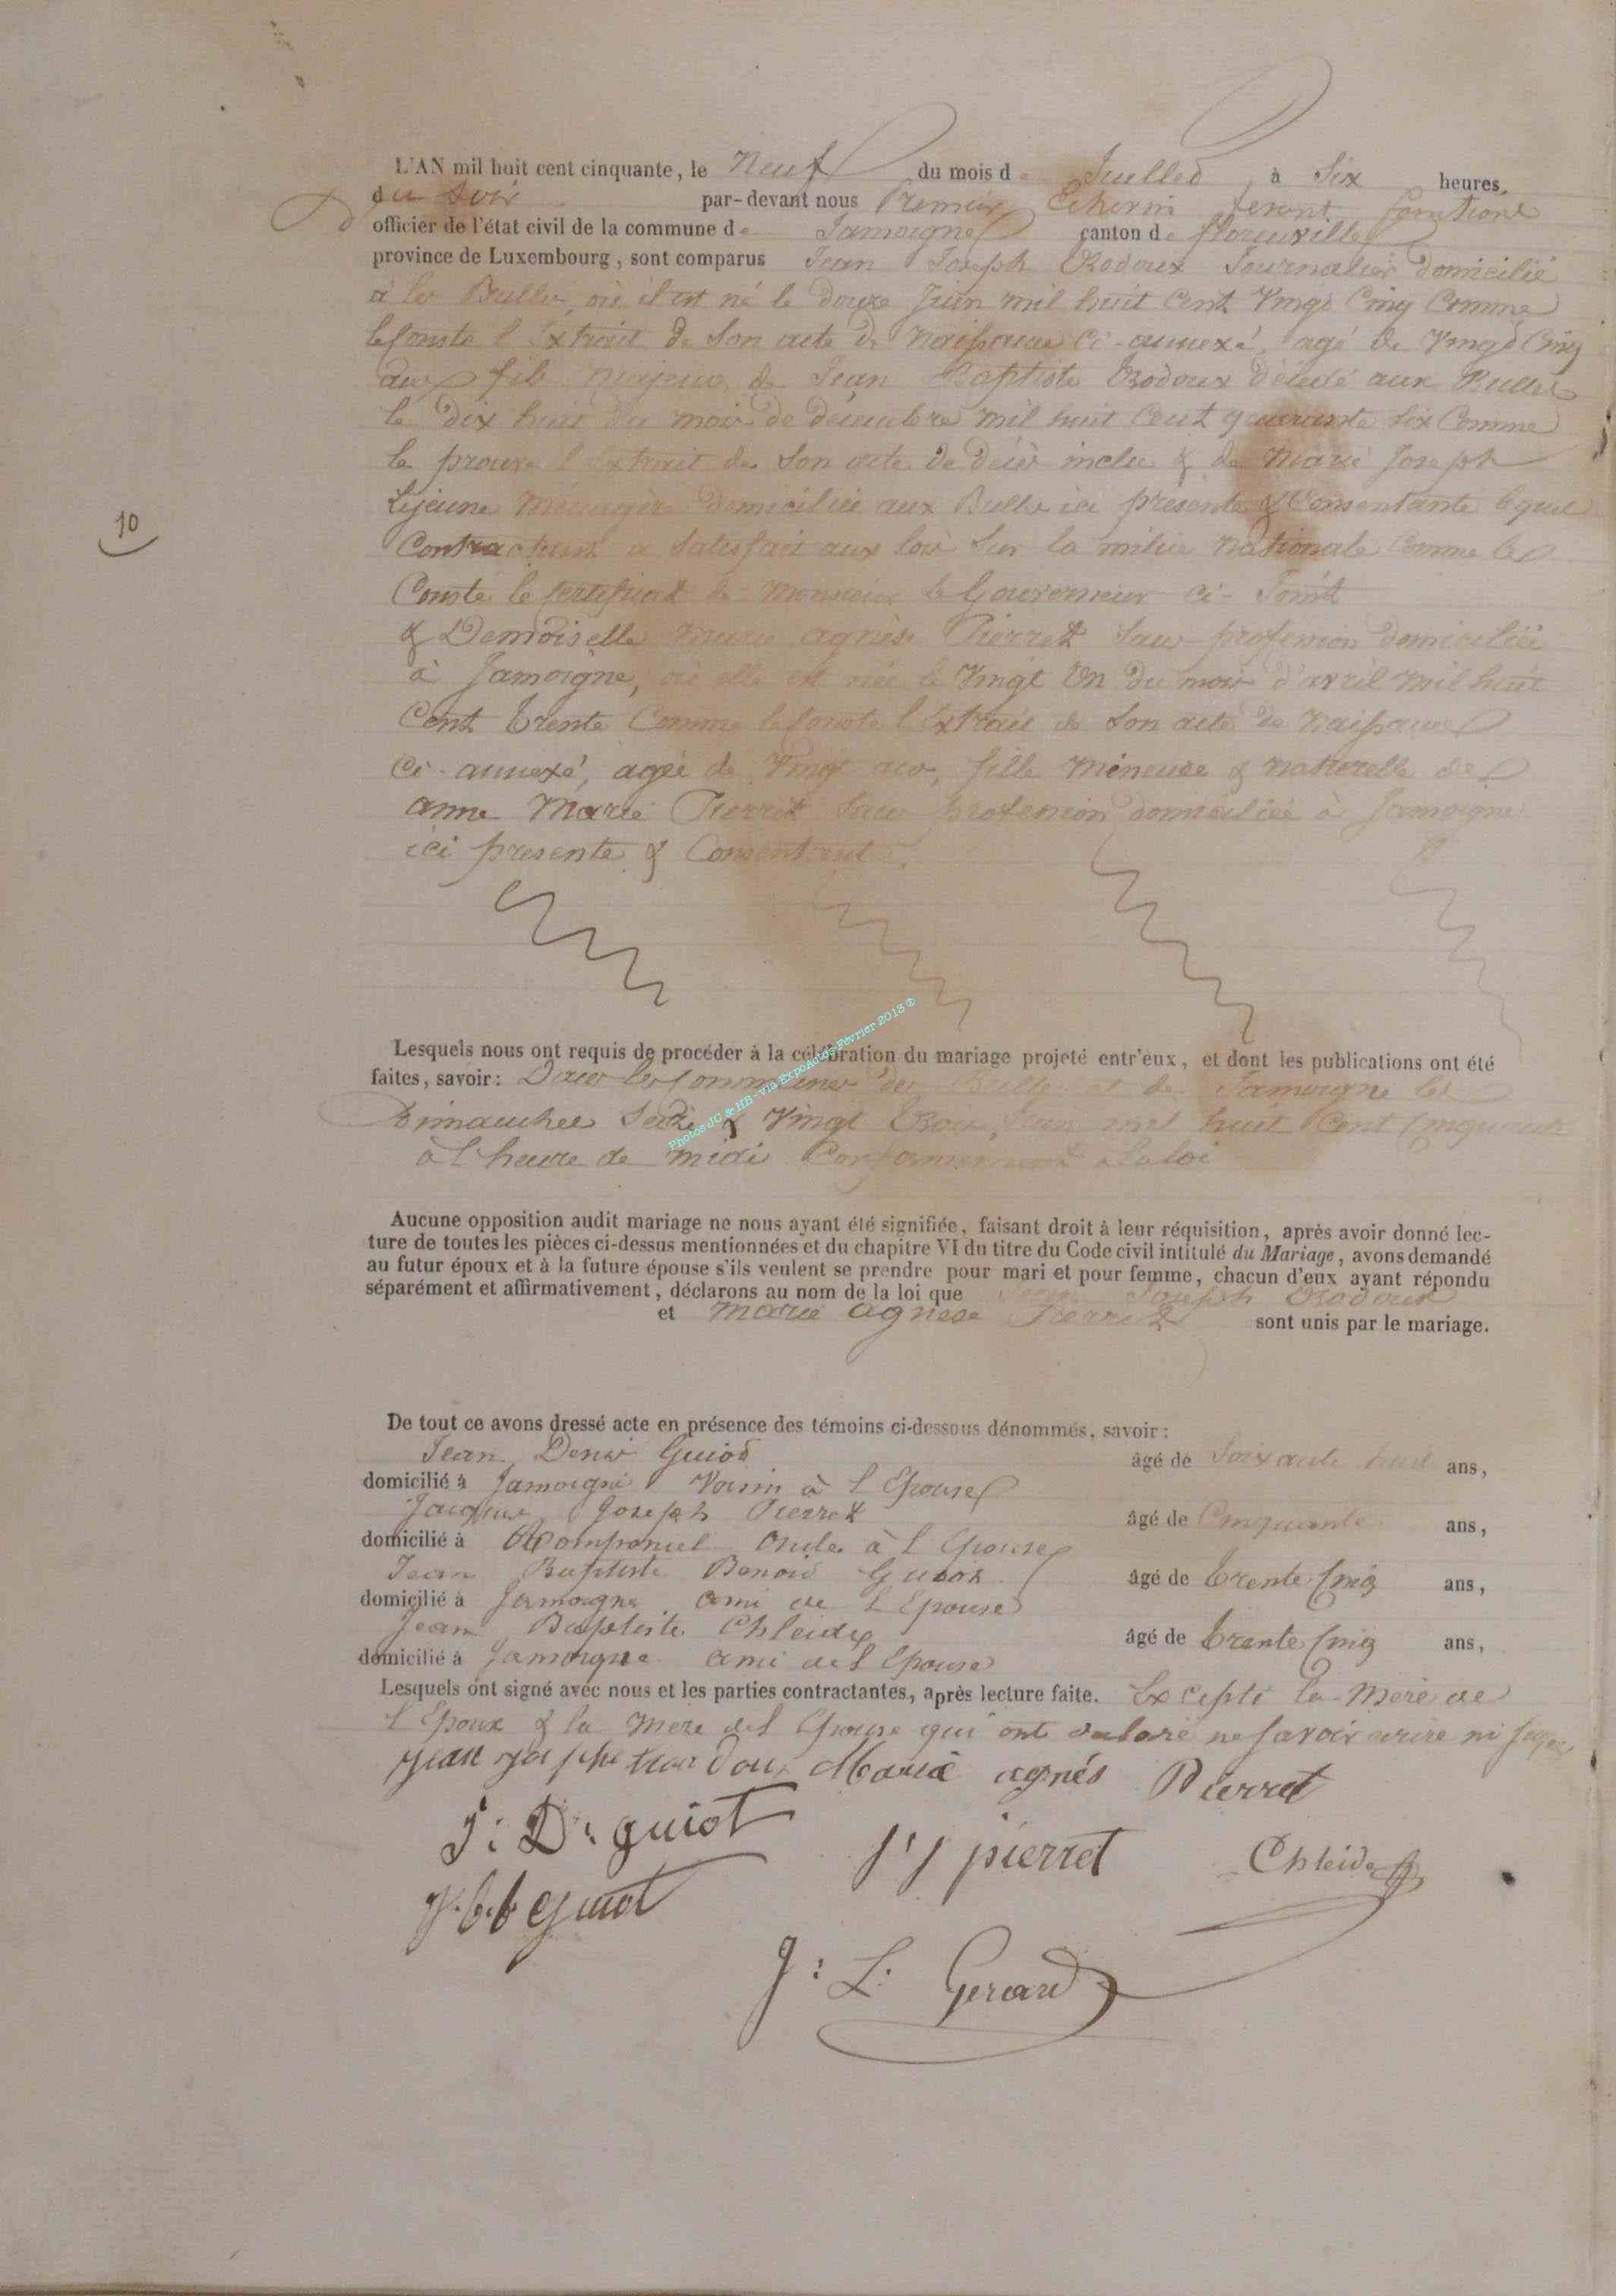 L'AN mil huit cent cinquante, le Neuf du mois de Juillet à Six heures
du Soir par-devant nous Premier Echevin fesant fonctions
d officier de l'état civil de la commune de Jamoigne canton de florenville
province de Luxembourg, sont comparus Jean Joseph Journalier domicilié
à les Bulles, où il est né le douze Juin mil huit Cent Vingt Cinq Comme
le Conste l'Extrait de Son acte de Naissance Ci-annexé, agé de Vingt Cinq
ans fils majeur de Jean Baptiste décédé aux Bulles
le dix huit du mois de décembre mil huit Cent quarante Six Comme
le prouve l'Extrait de Son acte de décès inclu & de Marie Joseph
Lejeune Ménagère domiciliée aux Bulles ici présente & Consentante lequel
Contractant a Satisfait aux lois Sur la milice Nationale Comme le
Conste le Certificat de Monsieur le Gouverneur ci-Joint
& Demoiselle Marie agnèse Pierret Sans profession domiciliée
à Jamoigne, où elle est née le Vingt Un du mois d'avril mil huit
Cent trente Comme le Conste l'Extrait de Son acte de Naissance
Ci-annexé, agée de Vingt ans, fille Mineuse & Naturelle de
anne Marie Pierret Sans profession domiciliée à Jamoigne
ici presente & Consentant.
10
Lesquels nous ont requis de procéder à la célébration du mariage projeté entr'eux, et dont les publications ont été
faites, savoir: Dans les Communes des Bulles et de Jamoigne les
Dimanches Seize & Vingt trois Juin mil huit Cent Cinquante
à l'heure de midi Conformement a la loi
Photos JC & HB - via ExpoActes Février 2013 ®
Aucune opposition audit mariage ne nous ayant été signifiée, faisant droit à leur réquisition, après avoir donné lec-
ture de toutes les pièces ci-dessus mentionnées et du chapitre VI du titre du Code civil intitulé du Mariage, avons demandé
au futur époux et à la future épouse s'ils veulent se prendre pour mari et pour femme, chacun d'eux ayant répondu
séparément et affirmativement, déclarons au nom de la loi que Jean Joseph
et Marie agnese Pierret sont unis par le mariage.
De tout ce avons dressé acte en présence des témoins ci-dessous dénommés, savoir:
Jean Denis Guiot âgé de Soixante huit ans,
domicilié à Jamoigne Voisin à l'Epouse
Jacques Joseph Pierret âgé de Cinquante ans,
domicilié à Romponcel Oncle à l'Epouse
Jean Baptiste Benoit Guiot âgé de trente Cinq ans,
domicilié à Jamoigne ami de l'Epouse
Jean Baptiste Chleide âgé de trente Cinq ans,
domicilié à Jamoigne ami de l'Epouse
Lesquels ont signé avec nous et les parties contractantes, après lecture faite. Excepté la Mere de
l'Epoux & la Mere de l'Epouse qui ont declaré ne Savoir écrire ni Signer
Jean Marie agnés Pierret
J: D: guiot
J J pierret
Chleide
J.b.b Guiot
J: L: Gerard